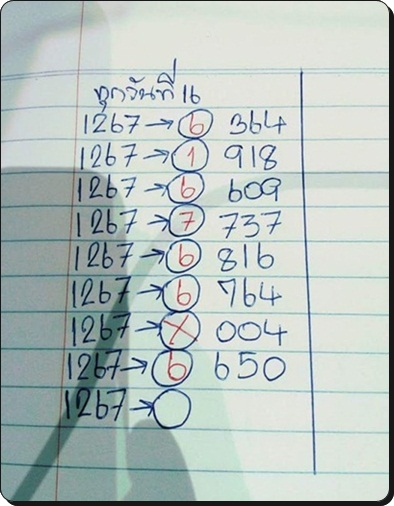 ทุกวันที่ 16
1267→6 364
1267→1 918
1267→6 609
1267→7 737
1267→6 816
1267→6 764
1267→X 004
1267→6 650
1267→